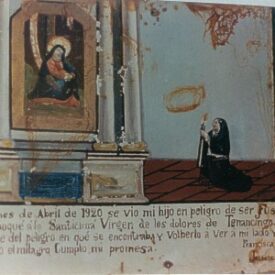 nes de Abril de 1920 se vio mi hijo en peligro de ser Fus
oque a la Santicima Virgen de los dolores de Tetrancingo
e del peligro en qué se encontraba y Volverlo a Ver a mi lado y
o el milagro Cumplo mi promesa. Francisca